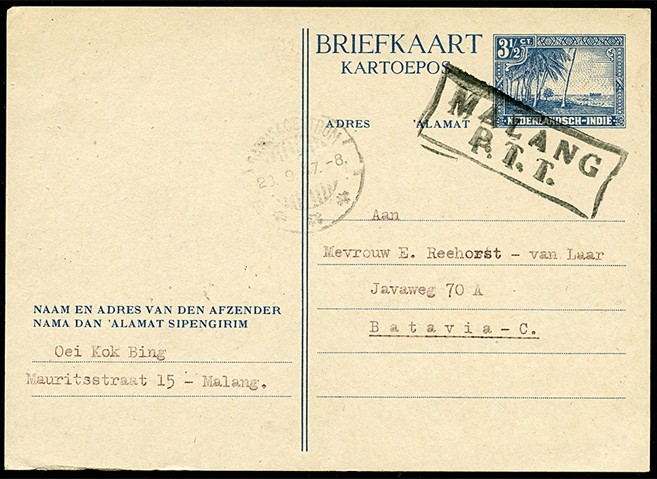 BRIEFKAART
KARTOEPOS
3½ CT.
NEDERLANDSCH-INDIE
ADRES 'ALAMAT
MALANG
P.T.T.
23. 9. 47.-8.
Aan
Mevrouw E. Reehorst - van Laar
Javaweg 70 A
Batavia-C.
NAAM EN ADRES VAN DEN AFZENDER
NAMA DAN 'ALAMAT SIPENGIRIM
Oei Kok Bing
Mauritsstraat 15 - Malang.